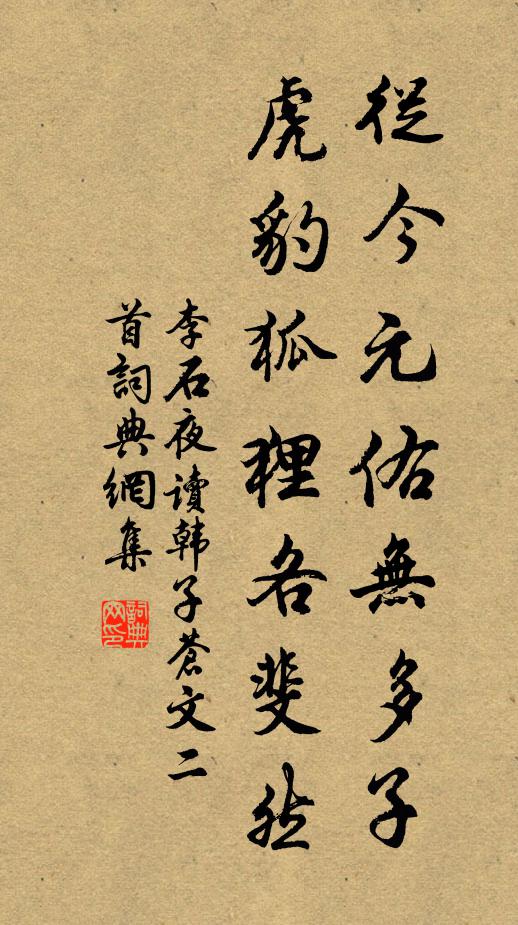 從今元佑無多子
虎豹狐狸各斐然
李石夜讀韩子蒼文二
首詞典網集
詞典
网印